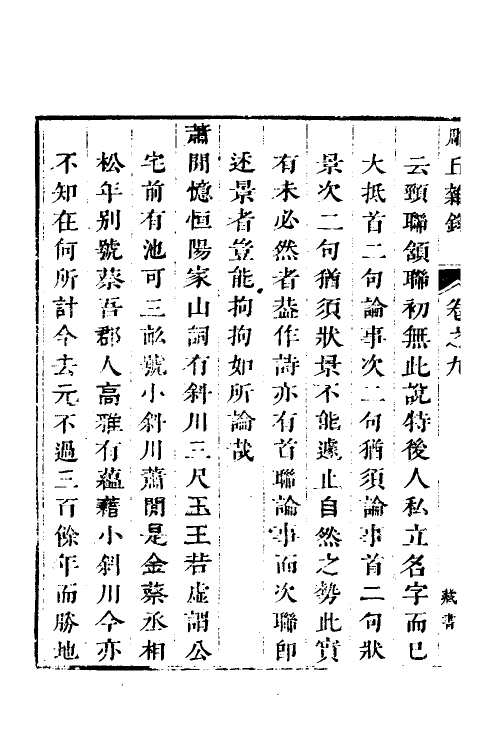 雕丘雜錄
卷之九
藏書
云頸聯頷聯初無此說特後人私立名字而已
大抵首二句論事次二句猶須論事首二句狀
景次二句猶須狀景不能遽止自然之勢此實
有未必然者葢作詩亦有首聯論事而次聯卽
述景者豈能拘拘如所論哉
蕭閒憶恒陽家山詞有斜川三尺玉王若虛謂公
宅前有池可三畝號小斜川蕭閒是金蔡丞相
松年别號蔡吾郡人高雅有蘊藉小斜川今亦
不知在何所計今去元不過三百餘年而勝地